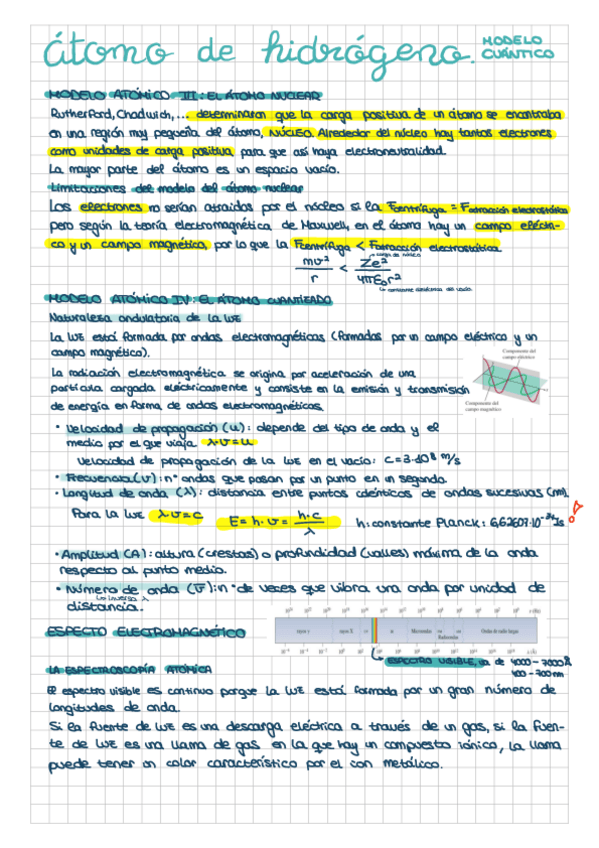 átomo de hidrógeno. MODELO CUÁNTICO
MODELO ATÓMICO III: EL ÁTOMO NUCLEAR
Rutherford, Chadwich,... determinaron que la carga positiva de un átomo se encontraba
en una región muy pequeña del átomo, NÚCLEO. Alrededor del núcleo hay tantos electrones
como unidades de carga positiva, para que así haya electroneutralidad.
La mayor parte del átomo es un espacio vacío.
Limitaciones del modelo del átomo nuclear
Los electrones no serían atraídos por el núcleo si la Fcentrífuga = Fatracción electrostática
pero según la teoría electromagnética de Maxwell, en el átomo hay un campo eléctri-
co y un campo magnético, por lo que la Fcentrífuga < Fatracción electrostática
mv²/r < Ze²/4πε₀r²
carga de núcleo
constante dieléctrica del vacío
MODELO ATÓMICO IV: EL ÁTOMO CUANTIZADO
Naturaleza ondulatoria de la luz
La luz está formada por ondas electromagnéticas (formadas por un campo eléctrico y un
campo magnético).
La radiación electromagnética se origina por aceleración de una
partícula cargada eléctricamente y consiste en la emisión y transmisión
de energía en forma de ondas electromagnéticas.
Componente del
campo eléctrico
Componente del
campo magnético
· Velocidad de propagación (u): depende del tipo de onda y el
medio por el que viaja λ·υ=u
Velocidad de propagación de la luz en el vacío: c=3·10⁸ m/s
· Frecuencia (υ): nº ondas que pasan por un punto en un segundo.
· Longitud de onda (λ): distancia entre puntos idénticos de ondas sucesivas (m).
Para la luz λ·υ=c E=h·υ= h·c/λ h: constante Planck: 6,62607·10⁻³⁴ Js
· Amplitud (A): altura (crestas) o profundidad (valles) máxima de la onda
respecto al punto medio.
· Número de onda (υ̅): nº de veces que vibra una onda por unidad de
distancia.
ESPECTO ELECTROMAGNÉTICO
rayos γ rayos X UV IR Microondas Ondas de radio largas
ESPECTRO VISIBLE, va de 4000-7000Å
400-700nm
LA ESPECTROSCOPÍA ATÓMICA
El espectro visible es continuo porque la luz está formada por un gran número de
longitudes de onda.
Si la fuente de luz es una descarga eléctrica a través de un gas, si la fuen-
te de luz es una llama de gas en la que hay un compuesto iónico, la llama
puede tener un color característico por el ion metálico.